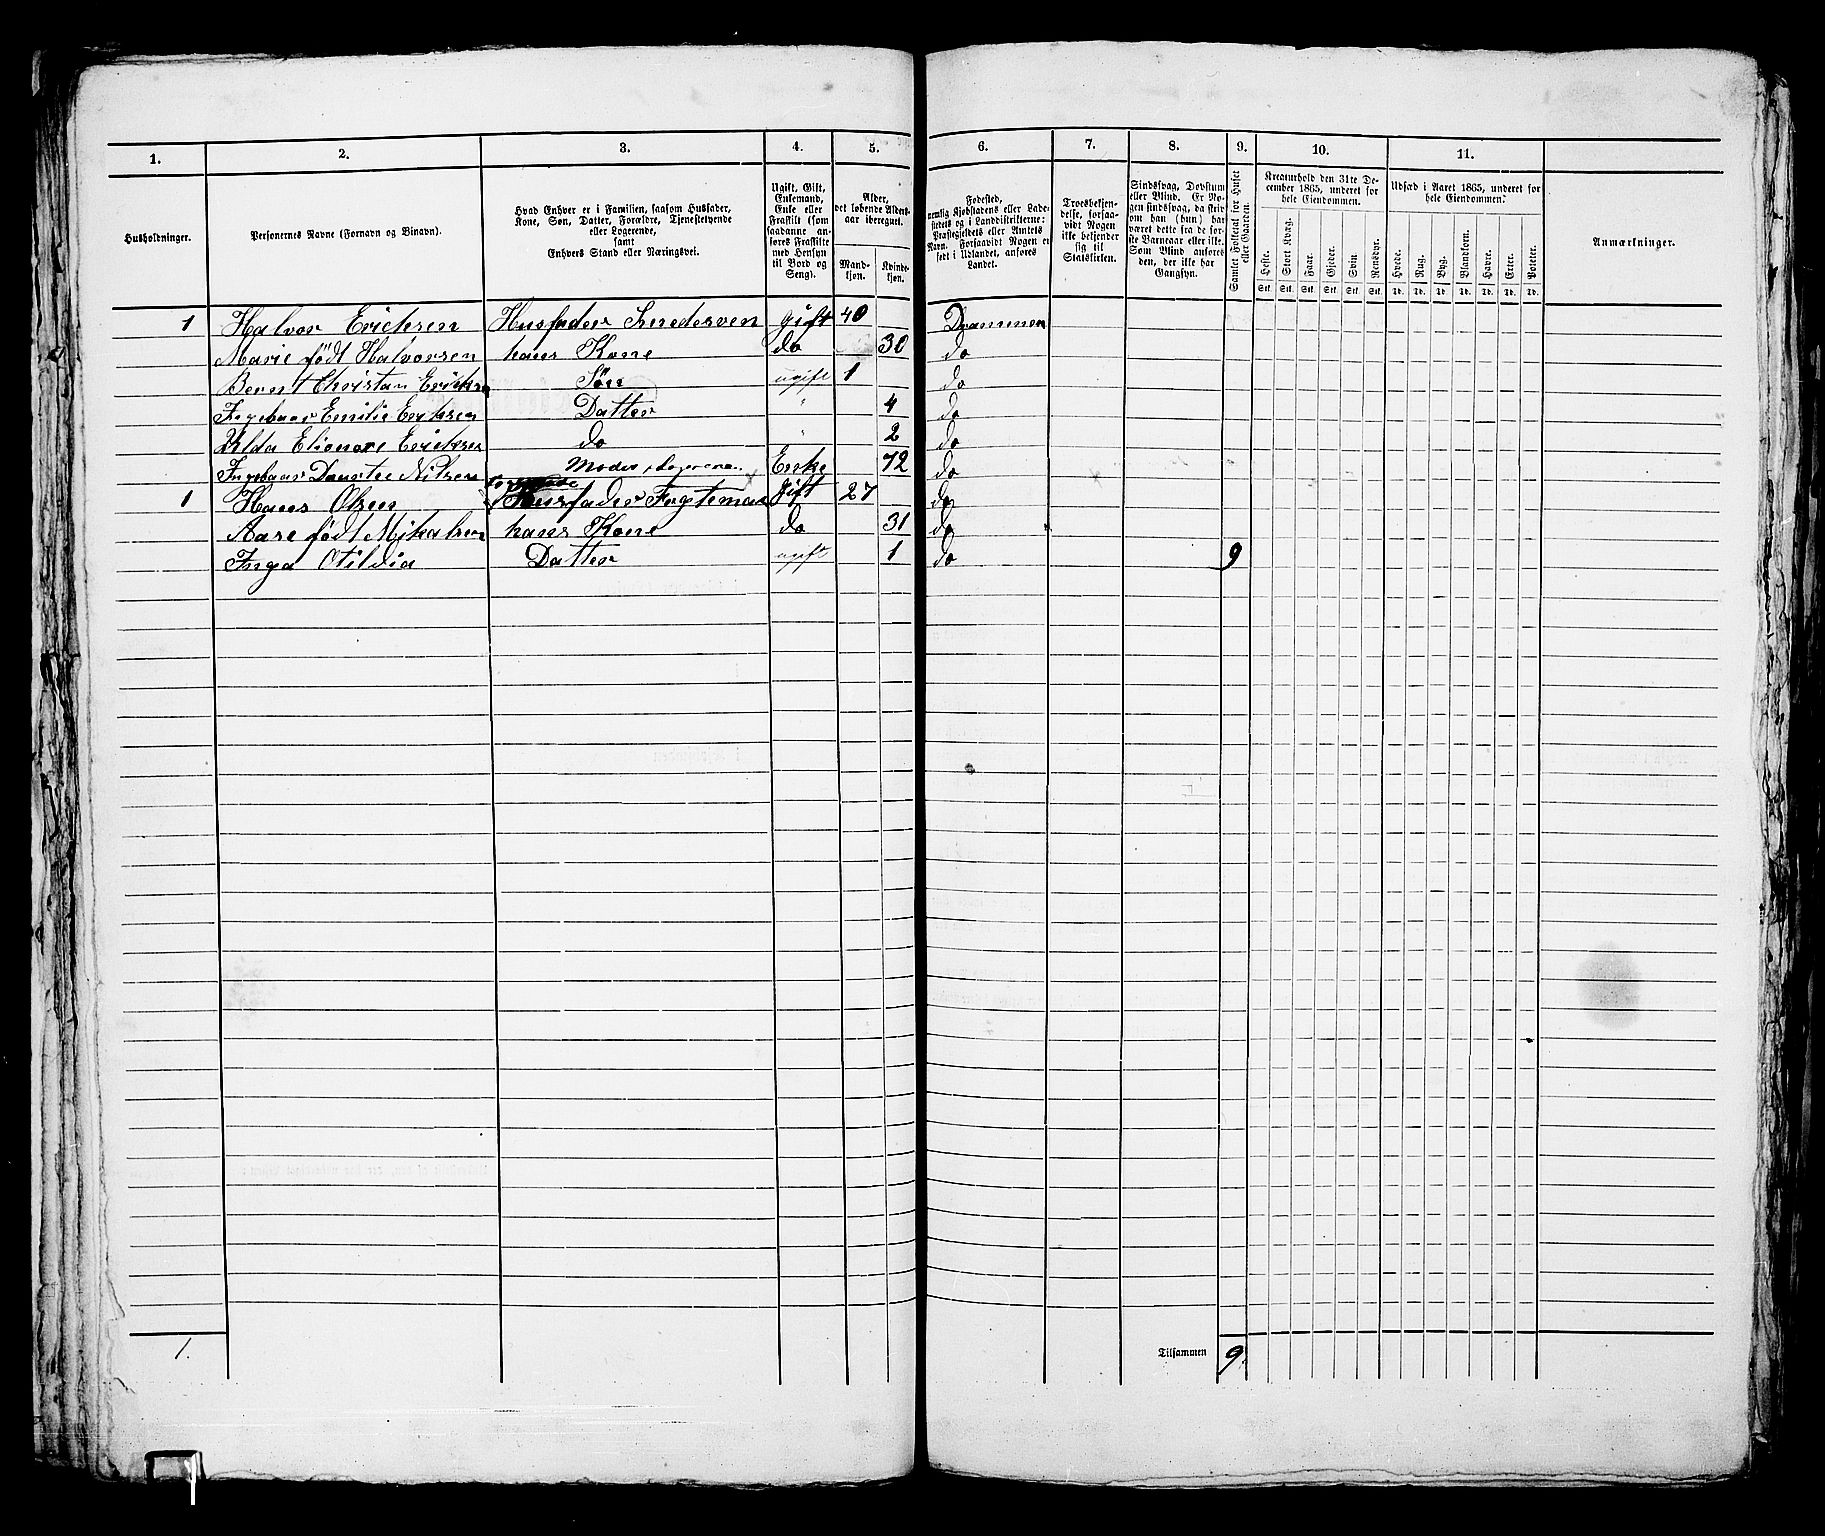 1. 2. 3. 4. 5. 6. 7. 8. 9. 10. 11.
Husholdninger.
Personernes Navne (Fornavn og Binavn).
Hvad Enhver er i Familien, saasom Husfader,
Kone, Søn, Datter, Forældre, Tjenestetyende
eller Logerende,
samt
Enhvers Stand eller Næringsvei.
Ugift, Gift,
Enkemand,
Enke eller
Fraskilt (som
saadanne an-
føres Fraskilte
med Hensyn
til Bord og
Seng).
Alder,
det løbende Alders-
aar iberegnet.
Mand-
kjøn.
Kvinde-
kjøn.
Fødested,
nemlig Kjøbstadens eller Lade-
stedets og i Landdistrikterne:
Præstegjeldets eller Amtets
Navn. Forsaavidt Nogen er
født i Udlandet, anføres
Landet.
Troesbekjen-
delse, forsaa-
vidt Nogen
ikke bekjender
sig til
Statskirken.
Sindssvag, Døvstum
eller Blind. Er No-
gen sindssvag, da skriv
om han (hun) har
været dette fra de før-
ste Barneaar eller ikke.
Som Blind anføres
den, der ikke har
Gangsyn.
Samlet Folketal for Huset
eller Gaarden.
Kreaturhold den 31te De-
cember 1865, underet for
hele Eiendommen.
Heste. Stort Kvæg. Faar. Gjeder. Svin. Rensdyr.
Stk. Stk. Stk. Stk. Stk. Stk.
Udsæd i Aaret 1865, underet for
hele Eiendommen.
Hvede. Rug. Byg. Blandkorn. Havre. Erter. Poteter.
Td. Td. Td. Td. Td. Td. Td.
Anmærkninger.
1 Halvor Erichsen Husfader Smedesven gift 40 Drammen
Marie født Halvorsen hans Kone do 30 do
Bernt Christan Søn ugift 1 do
Ingebaar Emilie Erichsen Datter " 4 do
Elionore Erichsen do " 2 do
Ingebaar Nilsen Moder, Enke 72 do
1 Hans Olsen Husfader gift 27 do
født Mikalsen hans Kone do 31 do
Inga Otilvia Datter ugift 1 do 9
1.
Tilsammen 9.